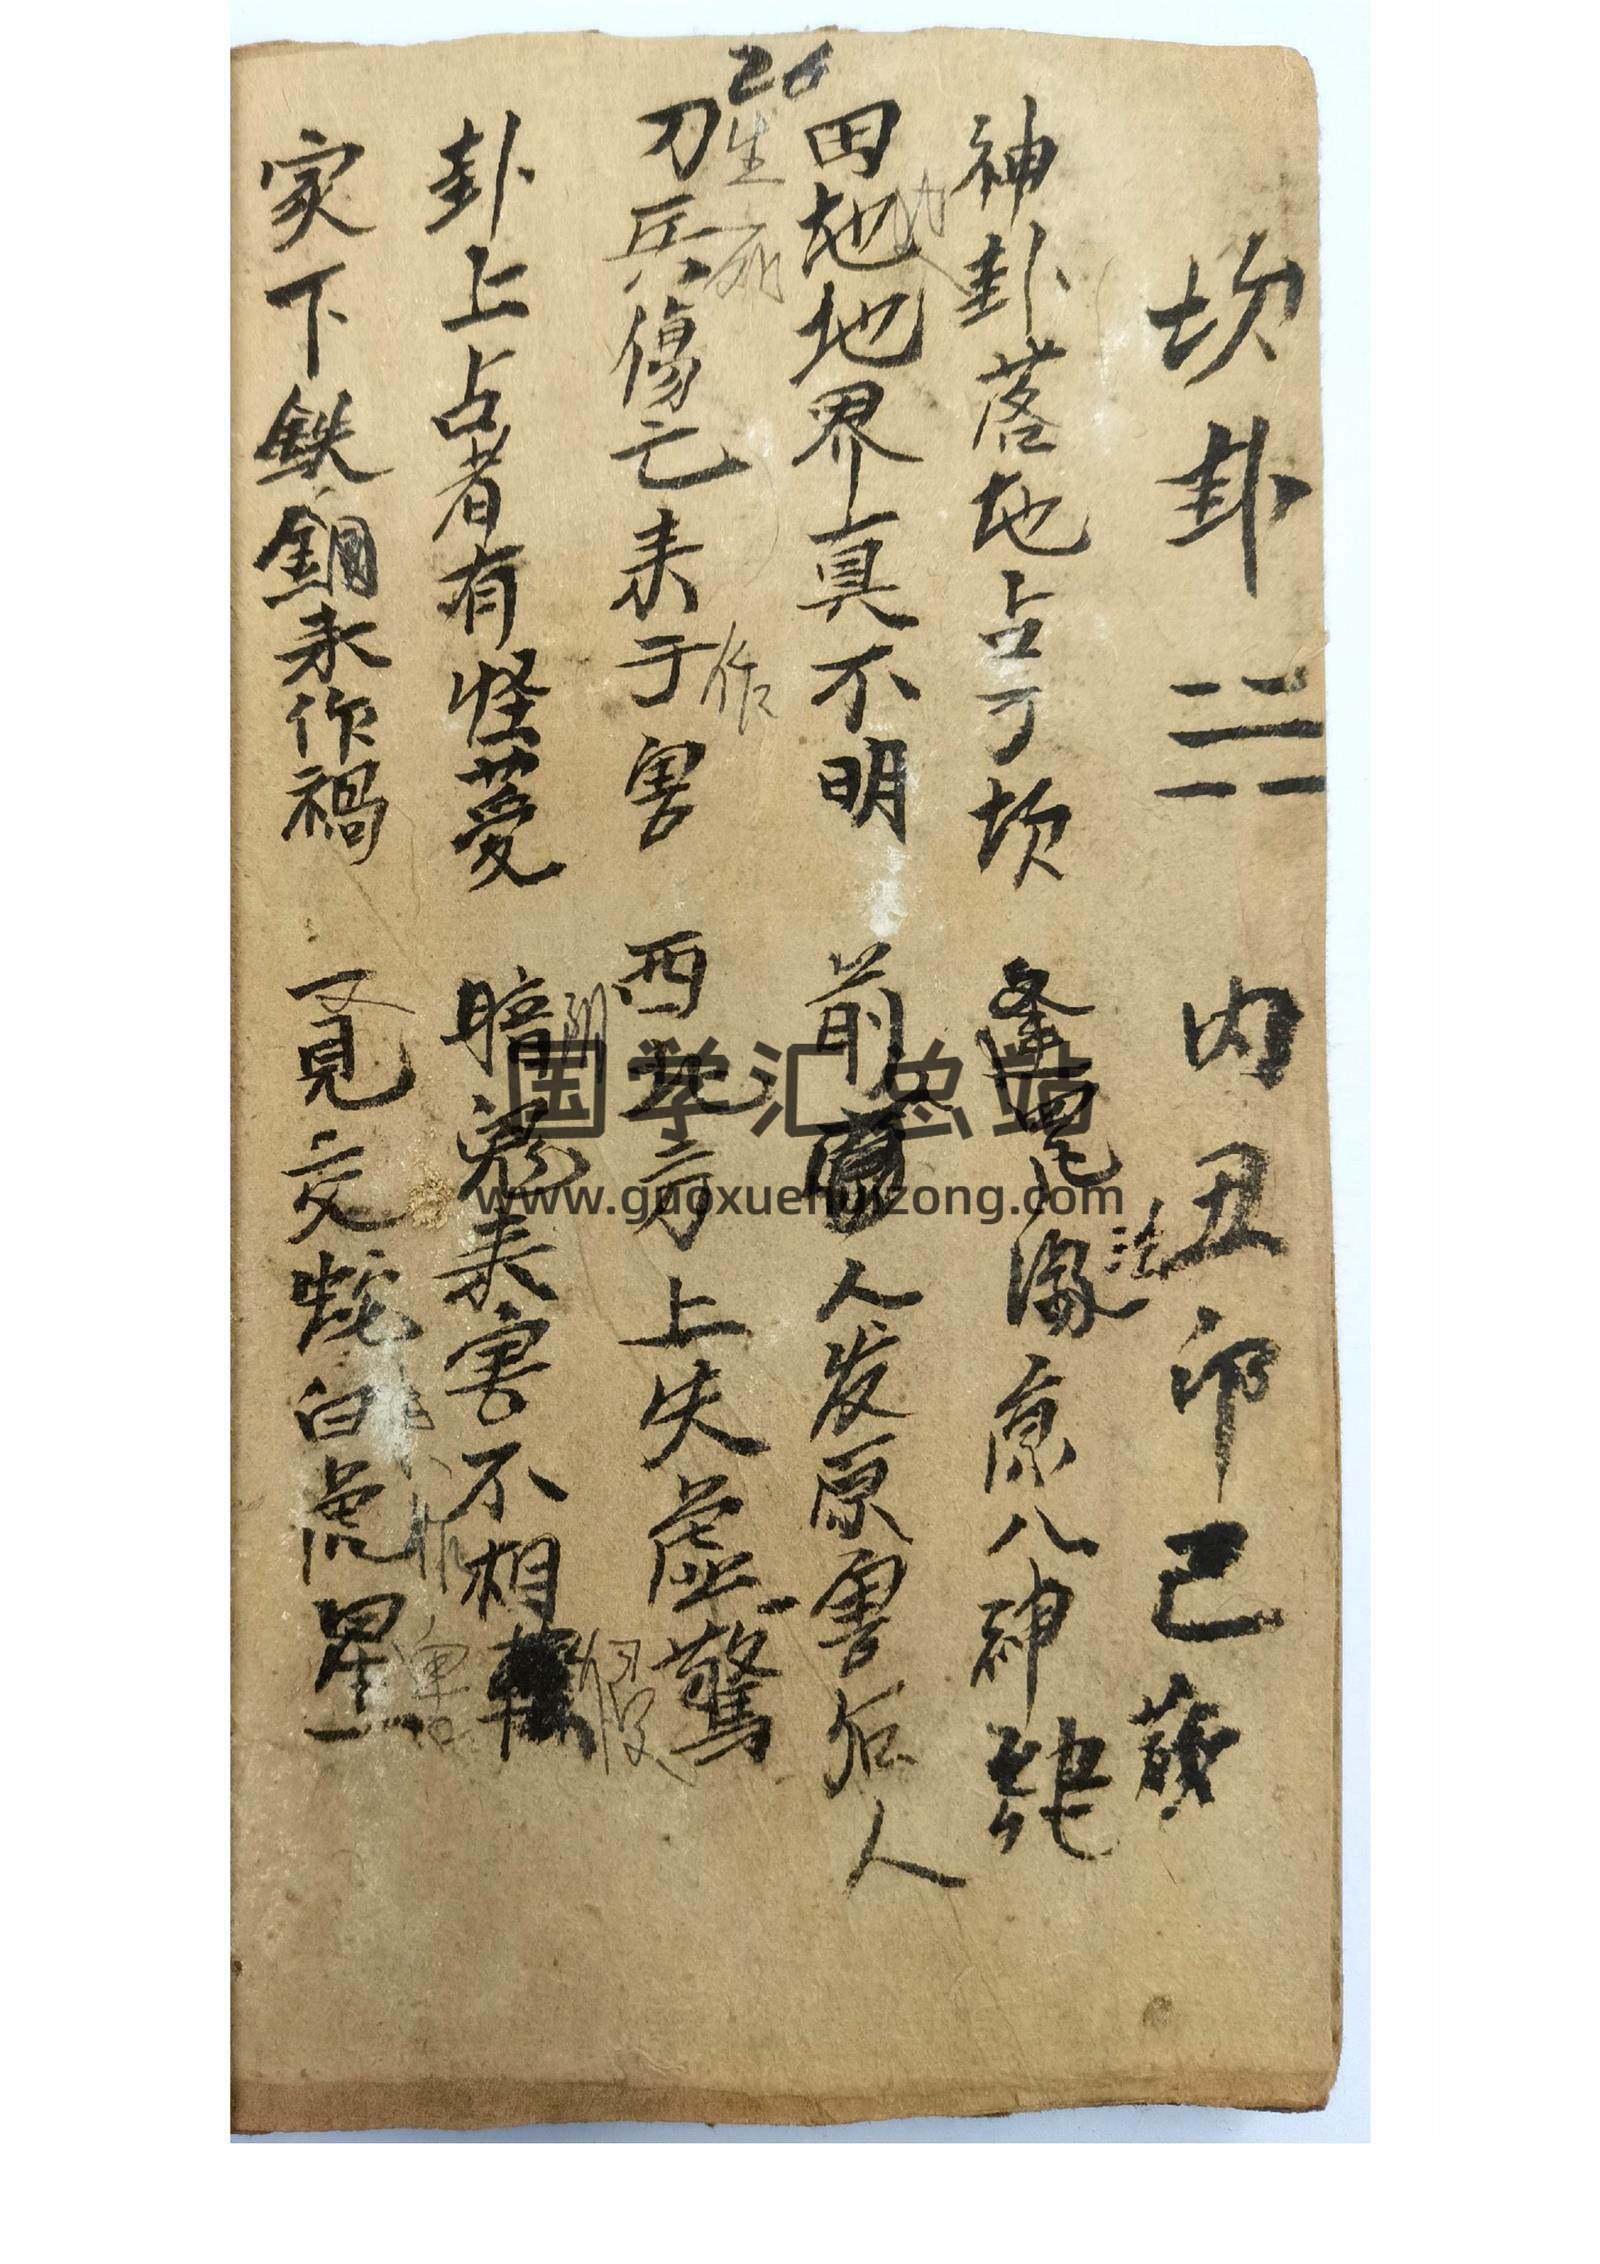 坎卦 ☵ 内丑卯己
神卦落地占丁坎 逢 原八神
田地地界真不明 前 人发原害后人
刀兵傷亡来于害 西北方上失虚驚
26
生死
作
卦上占者有怪 暗鬼来害不相
假
家下鉄鍋来作禍 又見交蛇白虎星
作
国学汇总站
www.guoxuehuizong.com